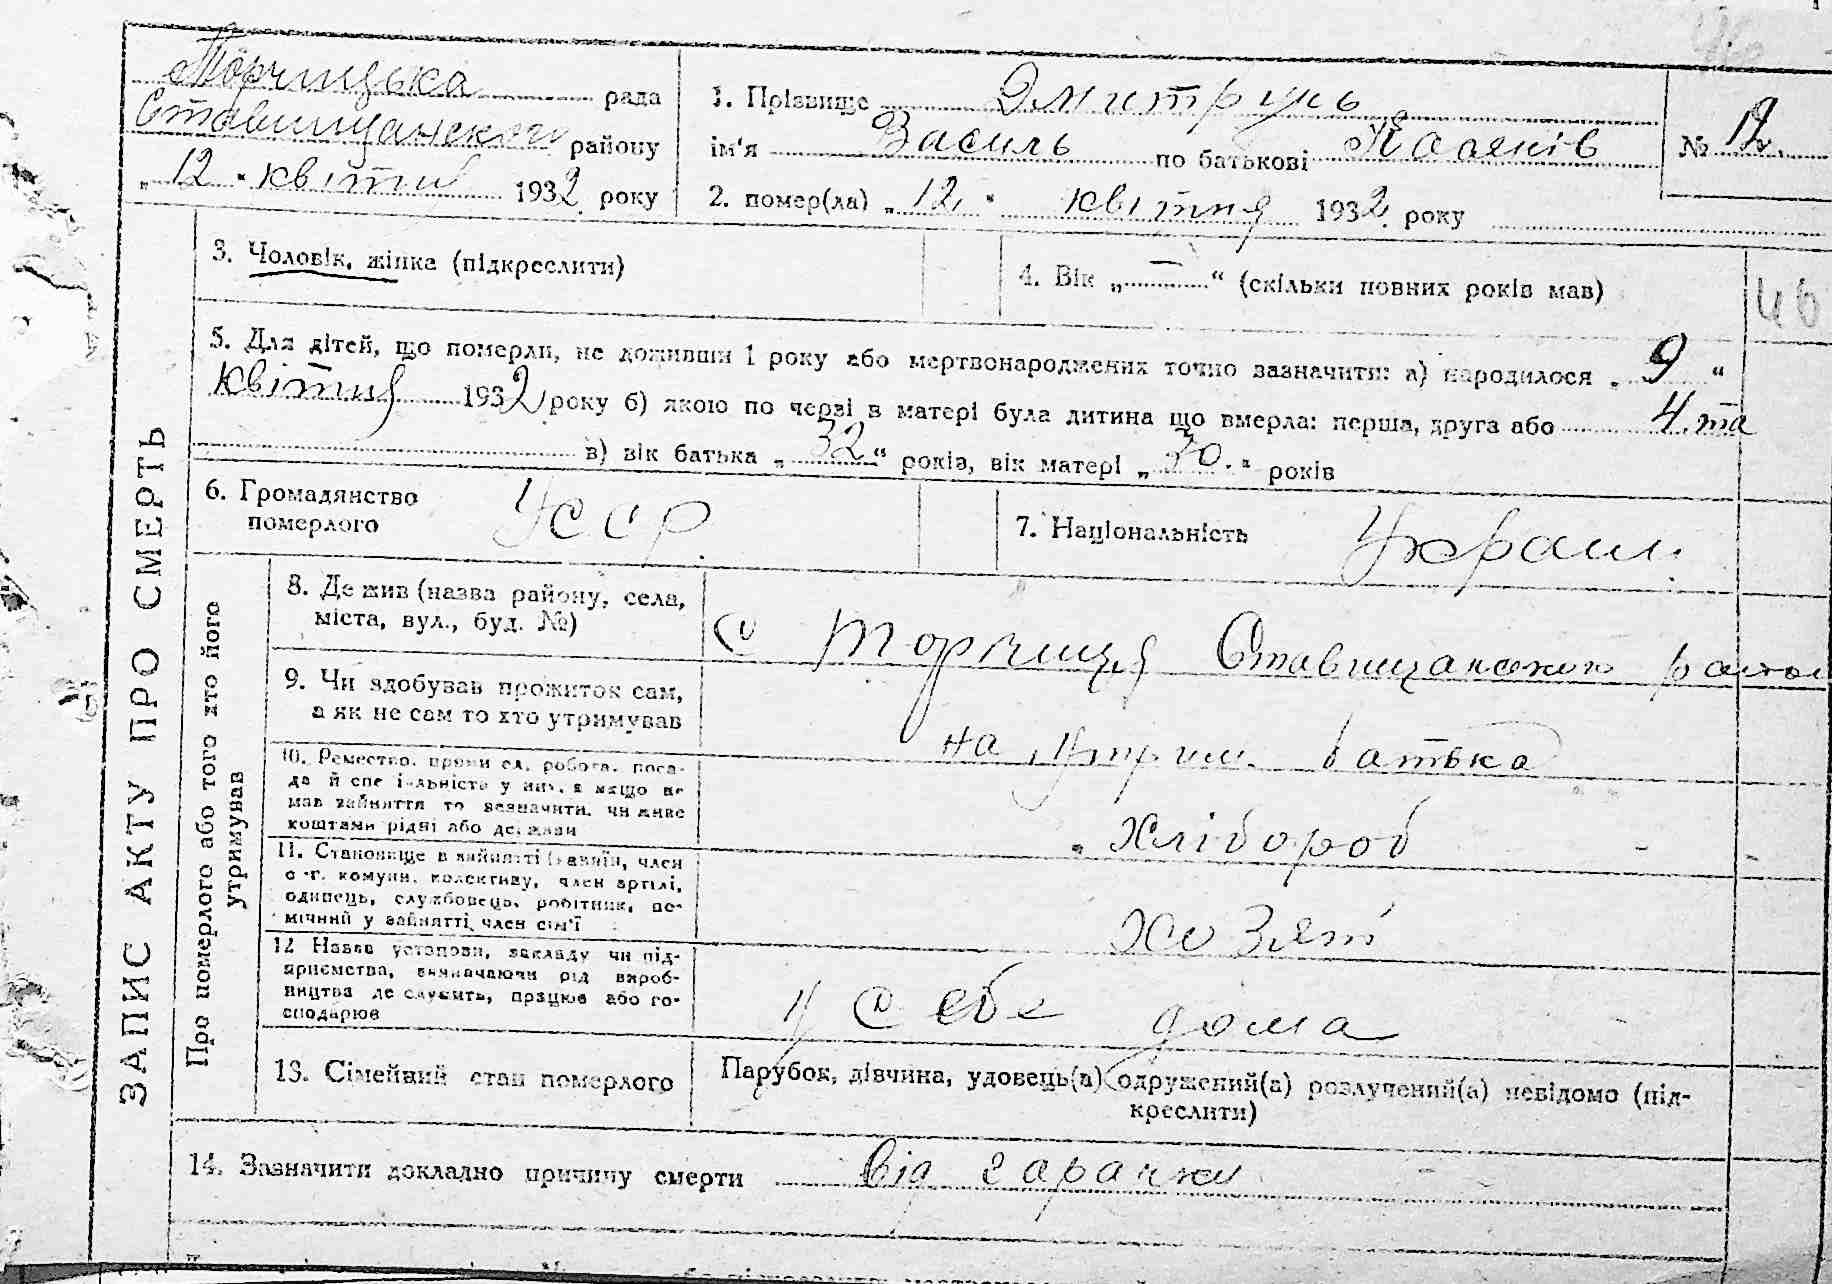 Торчицька рада
Ставищанского району
„12" квітня 1932 року
1. Прізвище Дмитрунь
ім'я Василь по батькові
№ 12.
2. помер(ла) „12" квітня 1932 року
3. Чоловік, жінка (підкреслити)
4. Вік „—" (скільки повних років мав)
46
5. Для дітей, що померли, не доживши 1 року або мертвонароджених точно зазначити: а) народилося „9"
квітня 1932 року б) якою по черзі в матері була дитина що вмерла: перша, друга або 4.та
в) вік батька „32" років, вік матері „30." років
6. Громадянство
померлого
УССР.
7. Національність Україн.
ЗАПИС АКТУ ПРО СМЕРТЬ
Про померлого або того хто його
утримував
8. Де жив (назва району, села,
міста, вул., буд. №)
с Торчиця Ставищанского
9. Чи здобував прожиток сам,
а як не сам то хто утримував
на утрим. батька
10. Ремество, промисл, робота, поса-
да й спеціальність у них, а якщо не
мав зайняття то зазначити, чи живе
коштами рідні або держави
Хлібороб
11. Становище в зайнятті (хазяїн, член
с.-г. комуни, колективу, член артілі,
одинець, службовець, робітник, по-
мічний у зайнятті, член сім'ї
Хозяїн
12 Назва установи, закладу чи під-
приємства, визначаючи рід вироб-
ництва де служить, працює або го-
сподарює
у себе дома
13. Сімейний стан померлого
Парубок, дівчина, удовець(а) одружений(а) розлучений(а) невідомо (під-
креслити)
14. Зазначити докладно причину смерти від гарачки